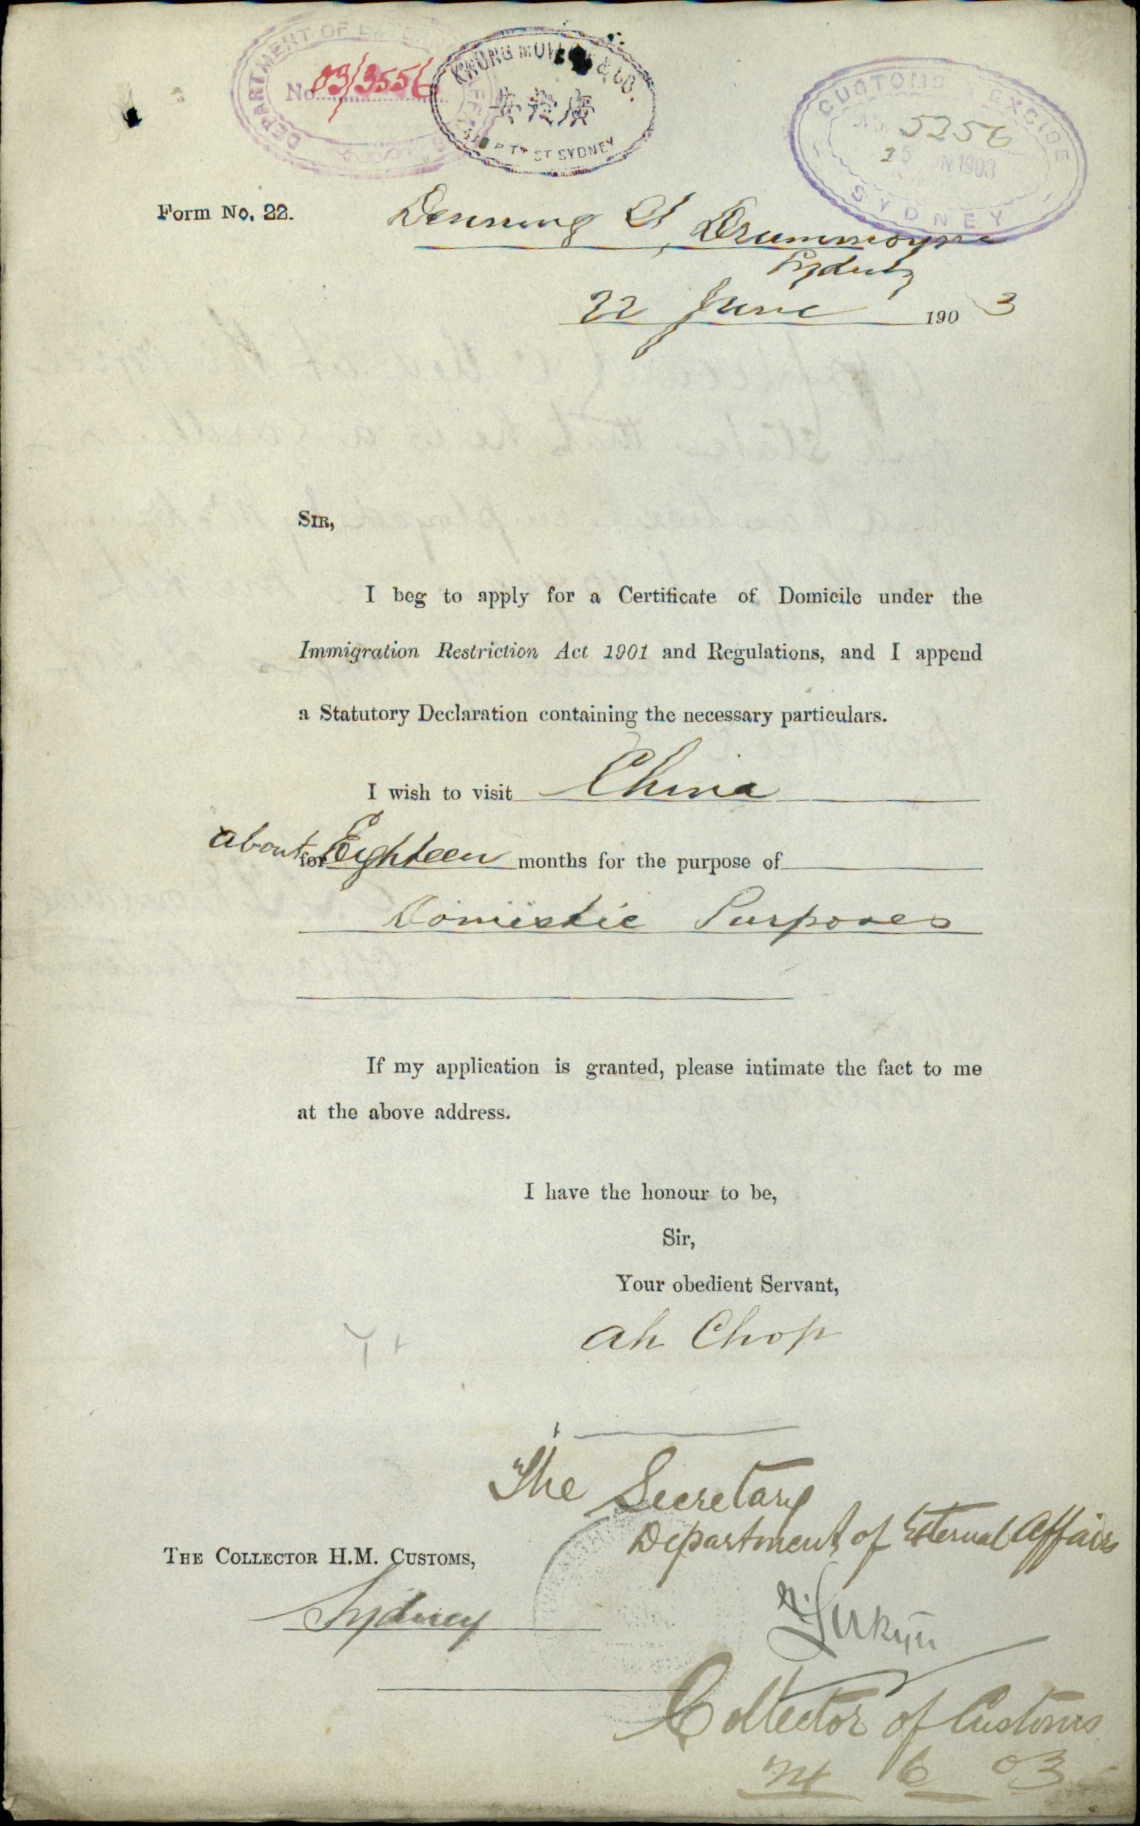 DEPARTMENT OF
No. 03/3556
KWUNG & CO.
ST SYDNEY
CUSTOMS EXCISE
5256
25 JUN 1903
SYDNEY
Form No. 22.
Denning St, Drummoyne
Sydney
22 June 1903
SIR,
I beg to apply for a Certificate of Domicile under the
Immigration Restriction Act 1901 and Regulations, and I append
a Statutory Declaration containing the necessary particulars.
I wish to visit China
about for Eighteen months for the purpose of
Domestic Purposes
If my application is granted, please intimate the fact to me
at the above address.
I have the honour to be,
Sir,
Your obedient Servant,
Ah Chop
The Secretary
Department of External Affairs
THE COLLECTOR H.M. CUSTOMS,
Sydney
Collector of Customs
24 6 03